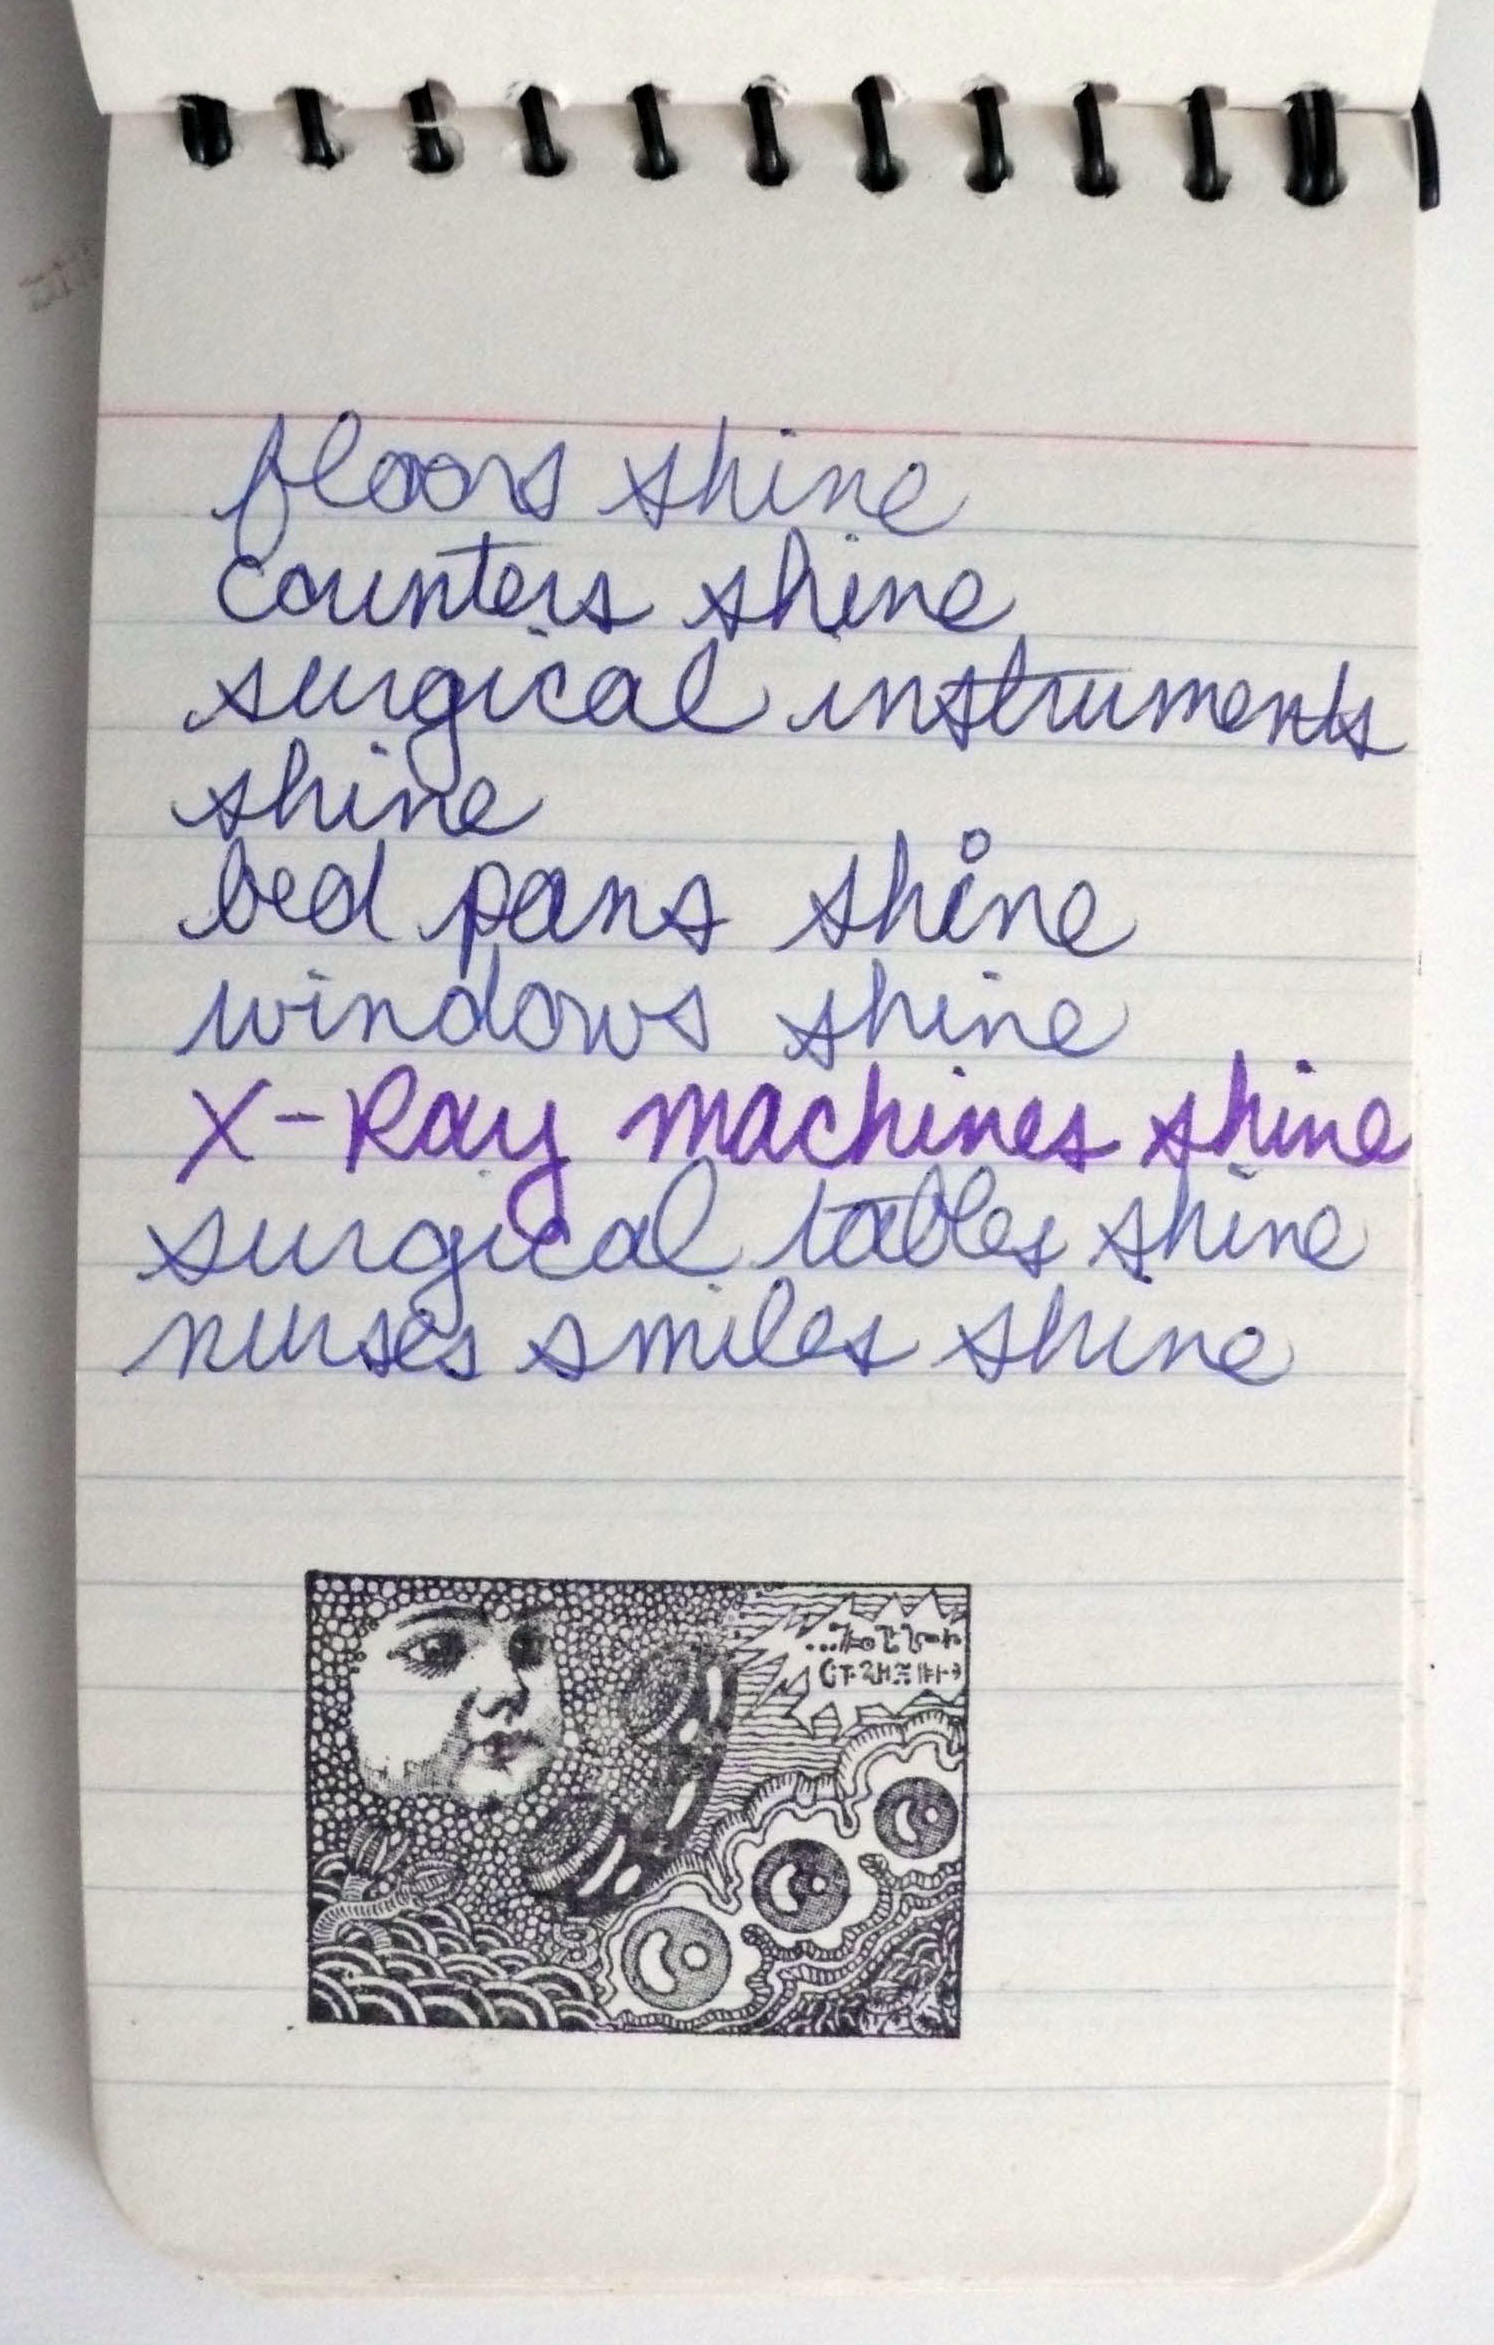 floors shine
counters shine
surgical instruments
shine
bed pans shine
windows shine
X-Ray machines shine
surgical tables shine
nurses smiles shine